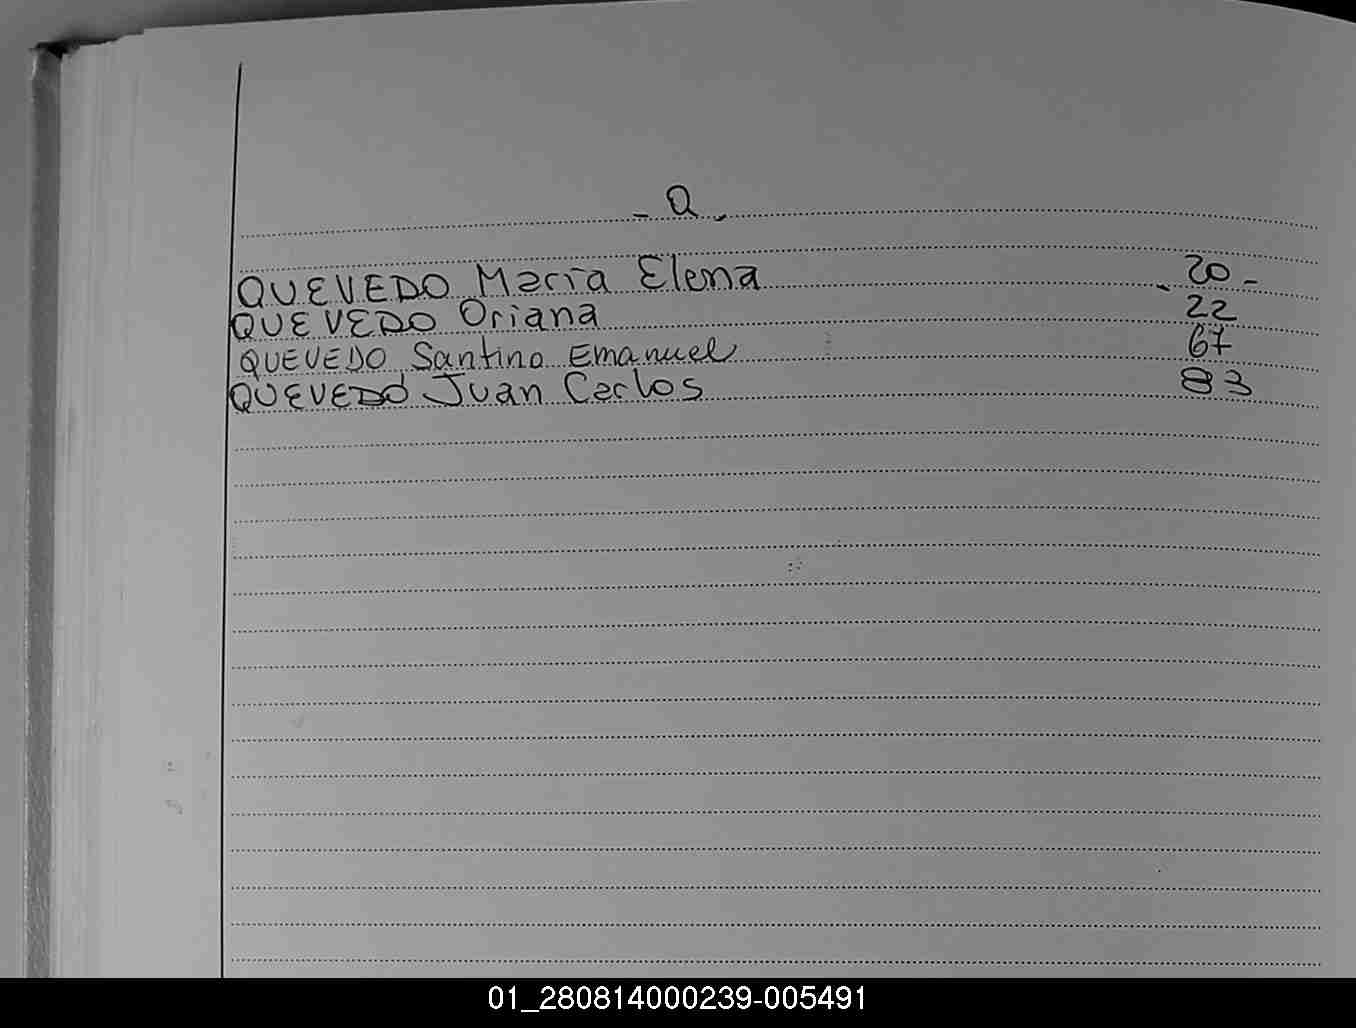 - Q -
QUEVEDO María Elena - 20 -
QUEVEDO Oriana 22
QUEVEDO Santino Emanuel 67
QUEVEDO Juan Carlos 83
01_280814000239-005491